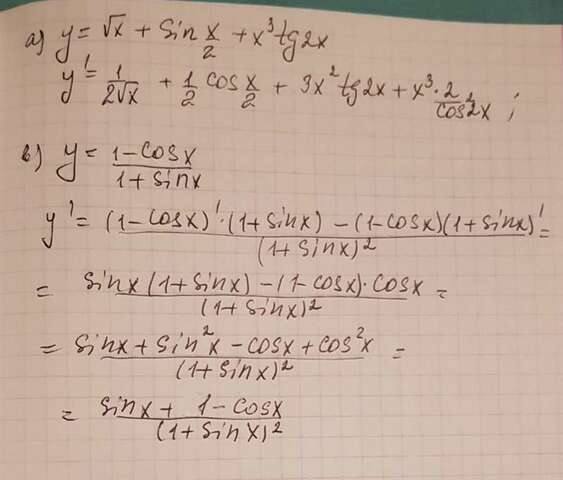 a) y = √x + sin x/2 + x³ tg 2x
y' = 1/(2√x) + 1/2 cos x/2 + 3x² tg 2x + x³ · 2/(cos² 2x) ;
b) y = (1 - cosx)/(1 + sinx)
y' = ((1 - cosx)' · (1 + sinx) - (1 - cosx)(1 + sinx)')/(1 + sinx)² =
= (sinx (1 + sinx) - (1 - cosx) · cosx)/(1 + sinx)² =
= (sinx + sin²x - cosx + cos²x)/(1 + sinx)² =
= (sinx + 1 - cosx)/(1 + sinx)²